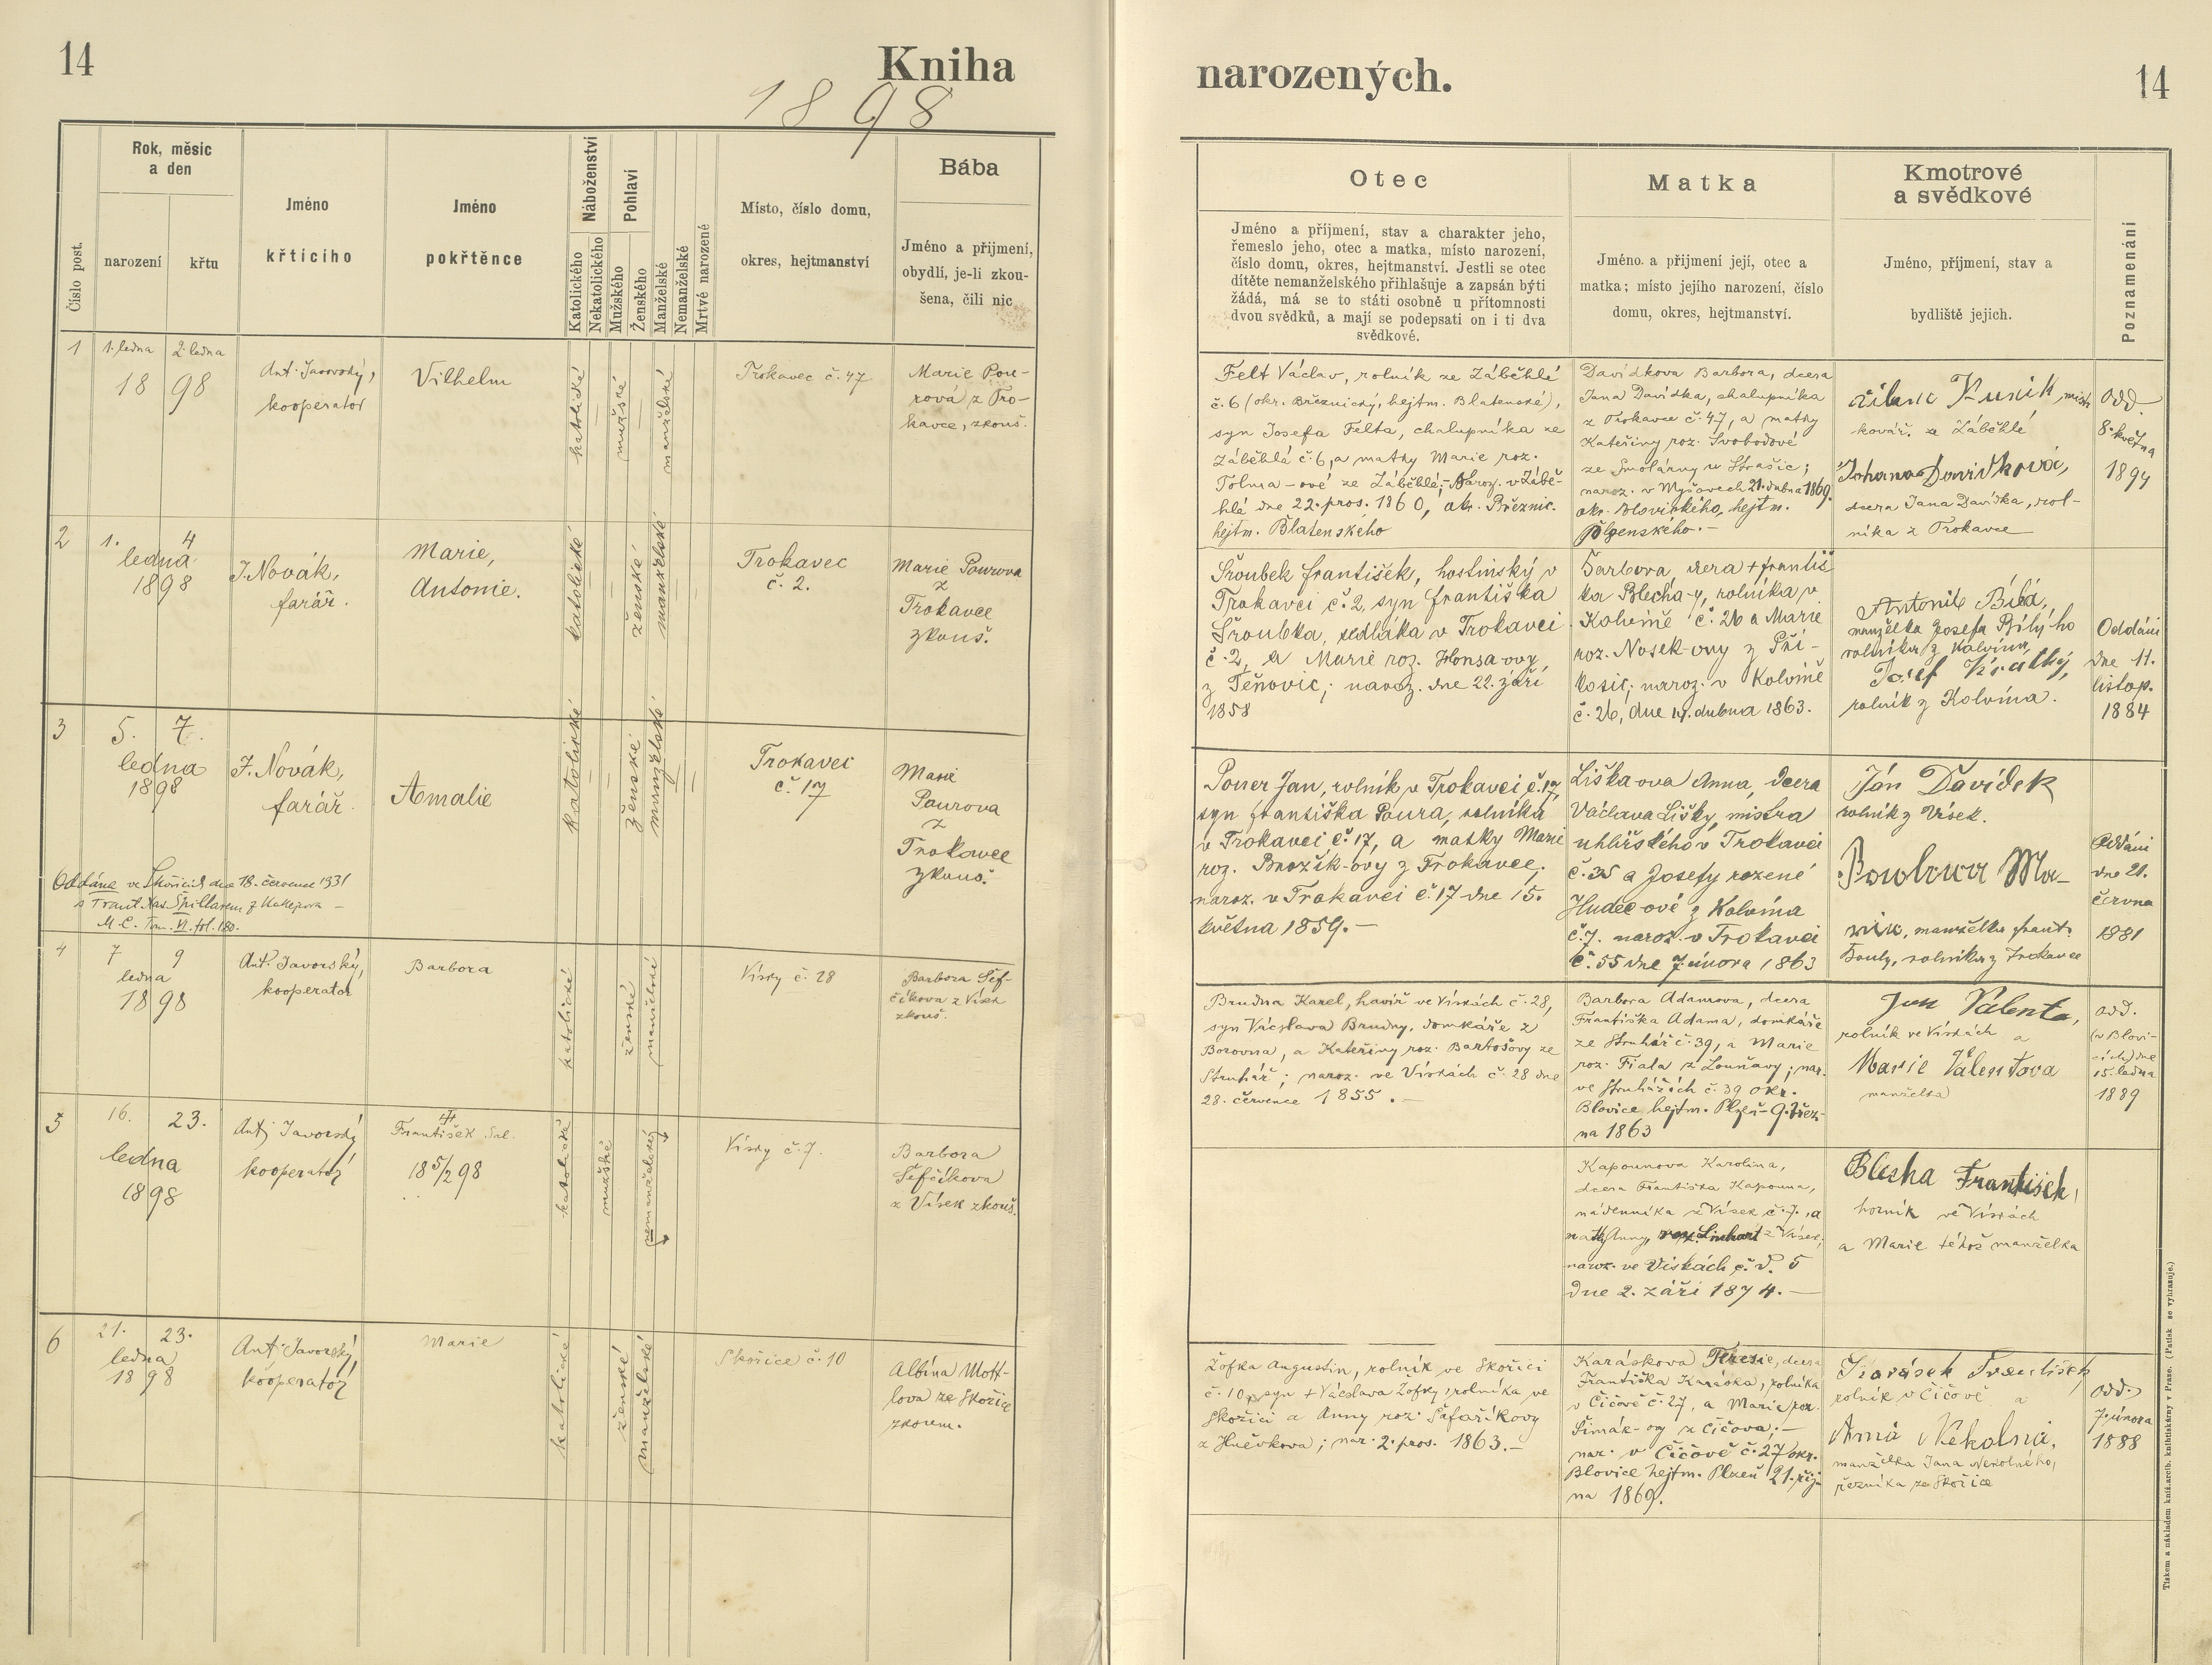 14
Kniha
1898
narozených.
14
Číslo post.
Rok, měsíc
a den
narození
křtu
Jméno
křtícího
Jméno
pokřtěnce
Náboženství
Katolického
Nekatolického
Pohlaví
Mužského
Ženského
Manželské
Nemanželské
Mrtvé narozené
Místo, číslo domu,
okres, hejtmanství
Bába
Jméno a přijmení,
obydlí, je-li zkou-
šena, čili nic
Otec
Jméno a příjmení, stav a charakter jeho,
řemeslo jeho, otec a matka, místo narození,
číslo domu, okres, hejtmanství. Jestli se otec
dítěte nemanželského přihlašuje a zapsán býti
žádá, má se to státi osobně u přítomnosti
dvou svědků, a mají se podepsati on i ti dva
svědkové.
Matka
Jméno a přijmení její, otec a
matka; místo jejího narození, číslo
domu, okres, hejtmanství.
Kmotrové
a svědkové
Jméno, příjmení, stav a
bydliště jejich.
Poznamenání
1
1. ledna
2. ledna
18 98
Ant. Javorský,
kooperator
Vilhelm
katolické
mužské
manželské
Trokavec č. 47
Marie Pou-
rová z Tro-
kavce, zkouš.
Felt Václav, rolník ze Záběhlé
č. 6 (okr. Březnický, hejtm. Blatenské),
syn Josefa Felta, chalupníka ze
Záběhlá č. 6, a matky Marie roz.
Tolma-ové ze Záběhlé; Naroz. v Zábě-
hlé dne 22. pros. 1860, okr. Březnic.
hejtm. Blatenského
Davídkova Barbora, dcera
Jana Davídka, chalupníka
z Trokavce č. 47, a matky
Kateřiny roz. Svobodové
ze Smolárny u Strašic;
naroz. v Myšovech 21. dubna 1869.
okr. Blovického, hejtm.
Plzenského.-
Kunik
kovář. ze Záběhlé
Johana Davidková,
dcera Jana Davídka, rol-
níka z Trokavce
Odd.
8. května
1894
2
1. 4
ledna
1898
J. Novák,
farář.
Marie,
Antonie.
katolické
ženské
manželské
Trokavec
č. 2.
Marie Pourova
z
Trokavce
zkouš.
Šroubek František, hostinský v
Trokavci č. 2, syn Františka
Šroubka, sedláka v Trokavci
č. 2, a Marie roz. Honsa-ovy,
z Těnovic; naroz. dne 22. září
1858
Barbora dcera + Františ
ka Blecha-y, rolníka v
Kolvíně č. 26 a Marie
roz. Nosek-ovy z Pří-
kosic; naroz. v Kolvíně
č. 26, dne 14. dubna 1863.
Antonie Bílá,
manželka Josefa Bílýho
rolníka z Kolvína,
Josef Krátký,
rolník z Kolvína.
Oddáni
dne 11.
listop.
1884
3
5. 7.
ledna
1898
J. Novák,
farář.
Amalie
katolické
ženské
manželské
Trokavec
č. 17
Marie
Pourova
z
Trokavce
zkouš.
Oddána ve Skořicích dne 18. července 1931
s Frant. Xav. Špillarem z Kakejcova -
M. C. Tom. VI. fol. 180.
Pouer Jan, rolník v Trokavci č. 17,
syn Františka Poura, rolníka
v Trokavci č. 17, a matky Marie
roz. Brožík-ovy z Trokavce;
naroz. v Trokavci č. 17 dne 15.
května 1859.-
Liška-ova Anna, dcera
Václava Lišky, mistra
uhlířského v Trokavci
č. 35 a Josefy rozené
Hudec-ové z Kolvína
č. 7. naroz. v Trokavci
č. 55 dne 7. února 1863
Ján Davídek
rolník z Vísek.
Ma-
rie, manželka Frant.
rolníka z Trokavce
Oddáni
dne 21.
června
1881
4
7 9
ledna
1898
Ant. Javorský,
kooperator
Barbora
katolické
ženské
manželské
Vísky č. 28
Barbora Šef-
číkova z Vísek
zkouš.
Brudna Karel, havíř ve Vískách č. 28,
syn Václava Brudny, domkáře z
Borovna, a Kateřiny roz. Bartošovy ze
Struhář; naroz. ve Vískách č. 28 dne
28. července 1855.-
Barbora Adamova, dcera
Františka Adama, domkáře
ze Struhář č. 39, a Marie
roz. Fiala z Louňavy; nar.
ve Struhářích č. 39 okr.
Blovice hejtm. Plzeň 9. břez-
na 1863
Jan Valenta,
rolník ve Vískách a
Marie Valentova
manželka
odd.
(v Blovi-
cích) dne
15. ledna
1889
5
16. 23.
ledna
1898
Ant. Javorský
kooperator
František Sal.
18 5/2 98
katolické
mužské
nemanželské
Vísky č. 7.
Barbora
Šefčíkova
z Vísek zkouš.
Kapounova Karolina,
dcera Františka Kapouna,
nádenníka z Vísek č. 7., a
matky Anny, roz. Linhart z Vísek;
naroz. ve Vískách č. d. 5
dne 2. září 1874.-
Blecha František,
horník ve Vískách
a Marie téhož manželka
6
21. 23.
ledna
1898
Ant. Javorský,
kooperator
Marie
katolické
ženské
manželské
Skořice č. 10
Albína Mott-
lova ze Skořice
zkoum.
Žofka Augustin, rolník ve Skořici
č. 10, syn + Václava Žofky, rolníka ve
Skořici a Anny roz. Šafaříkovy
z Hněvkova; nar. 2. pros. 1863.-
Karáskova Terezie, dcera
Františka Karáska, rolníka
v Čičově č. 27, a Marie roz.
Šimák-ovy z Čičova;-
nar. v Čičově č. 27 okr.
Blovice hejtm. Plzeň 21. říj-
na 1869.
Karásek František
rolník v Čičově a
Anna Nekolná,
manželka Jana Nekolného,
řezníka ze Skořice
odd.
7. února
1888
Tiskem a nákladem kníž. arcib. knihtiskárny v Praze. (Patisk se vyhrazuje.)